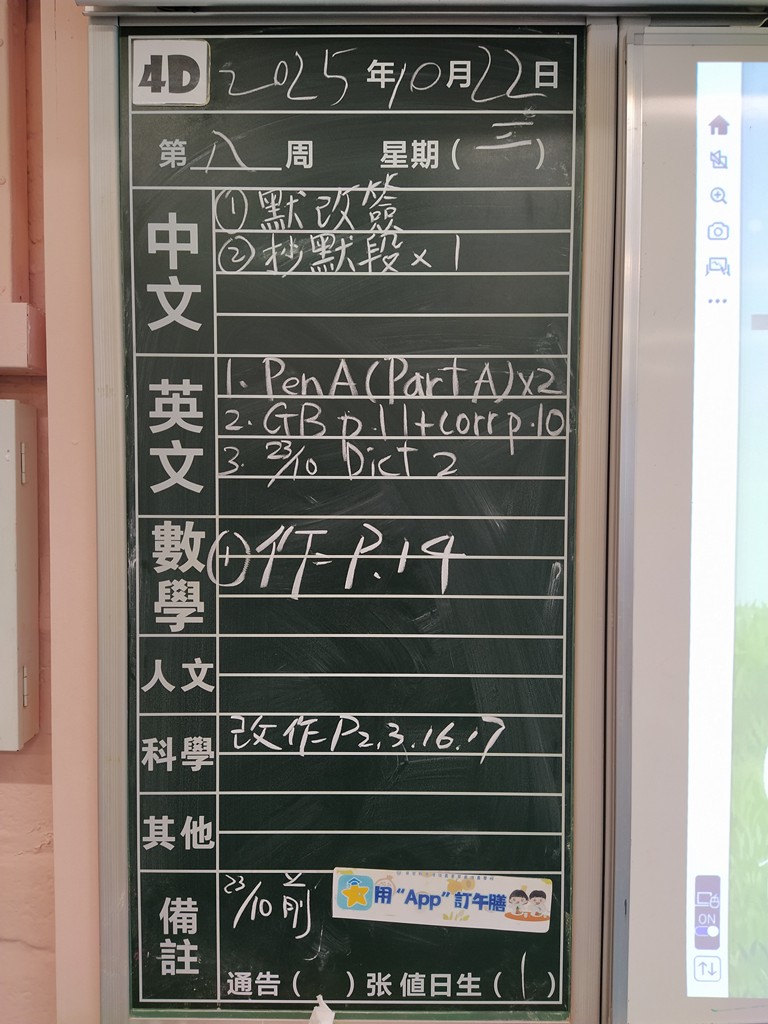 4D 2025年10月22日
第八周 星期(三)
中文
①默改簽
②抄默段×1
英文
1. Pen A (Part A)×2
2. GB p.11+corr p.10
3. 23/10 Dict 2
數學
①作=P.14
人文
科學
改作=P2.3.16.17
其他
備註
23/10前
用“App”訂午膳
通告( )张 值日生(1)
ON